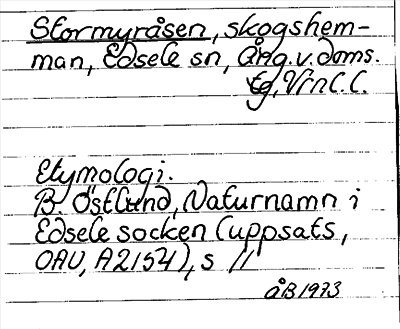 Stormyråsen, skogshem-
man, Edsele sn, Ång. v. doms.
tg, Vrnl. L.
Etymologi.
B. Östlund, Naturnamn i
Edsele socken (uppsats,
OAU, A2154), s 11
ÅB 1973